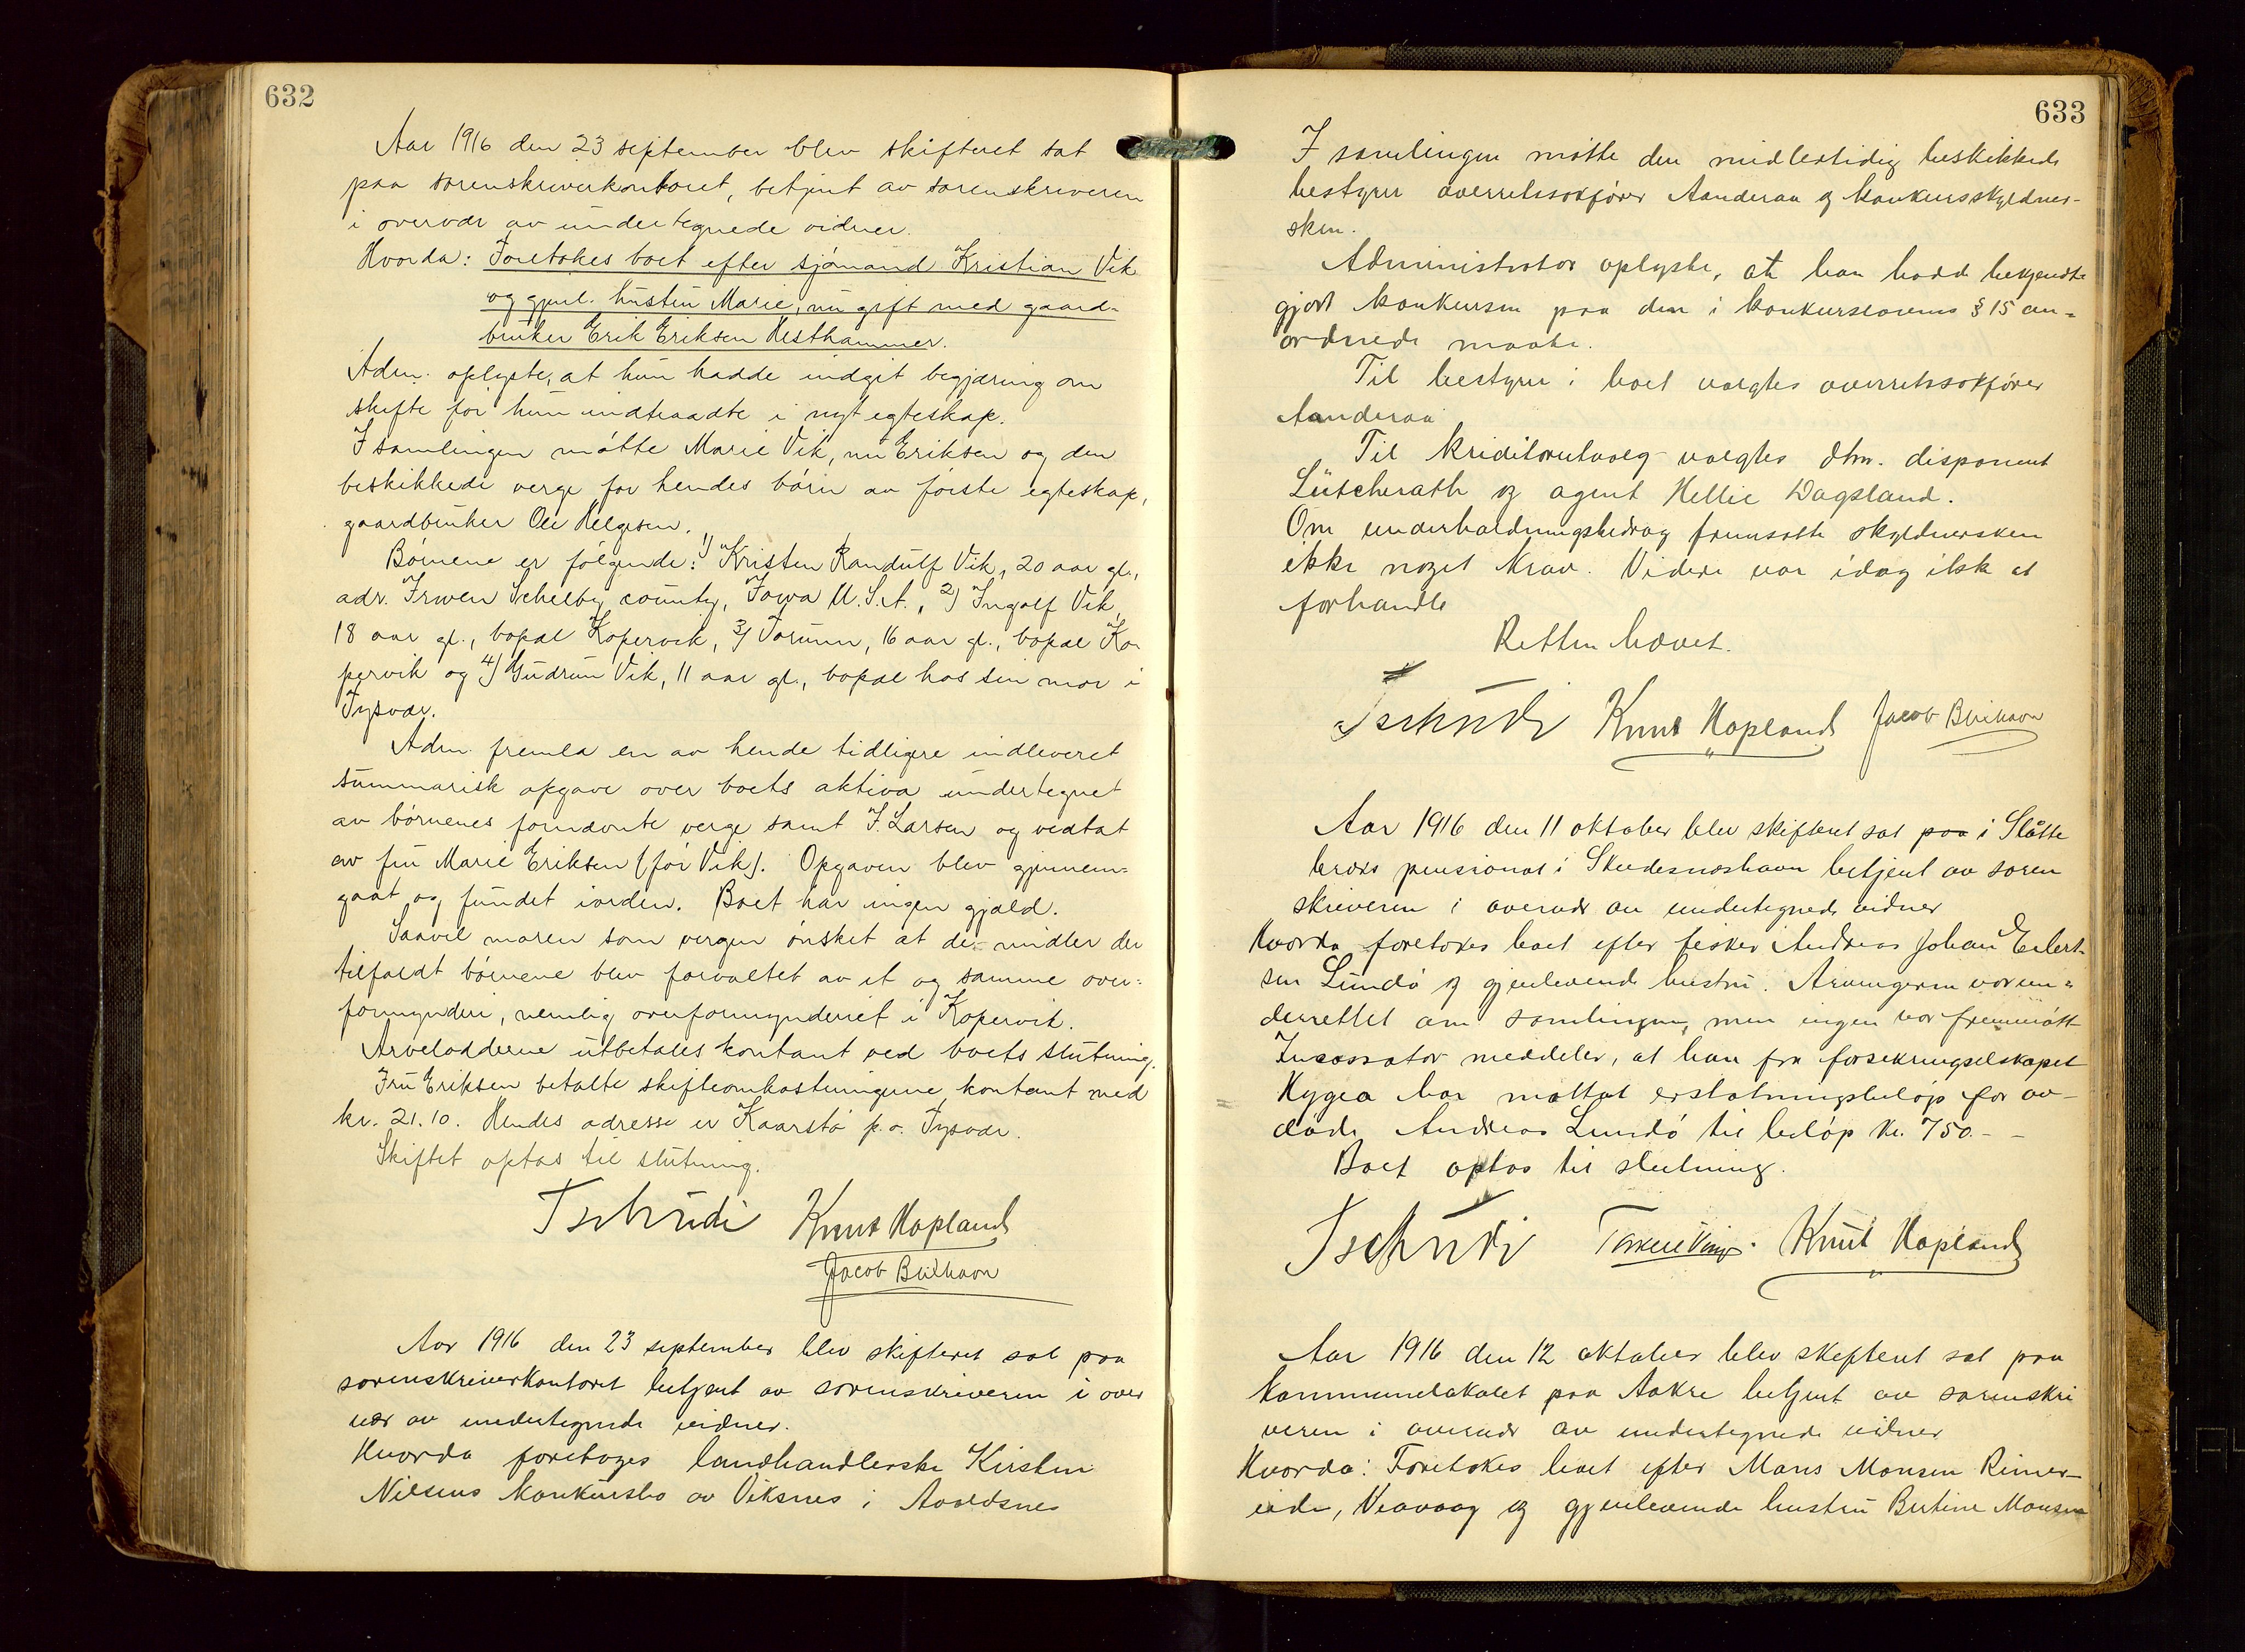 632
Aar 1916 den 23 september blev skifteret sat
paa sorenskriverkontoret, betjent av sorenskriveren
i overvær av undertegnede vidner.
Hvorda: Foretokes boet efter sjømand Kristian Vik
og gjenl. hustru Marie, nu gift med gaard-
bruker Erik Eriksen Hesthammer.
Adm. oplyste, at hun hadde indgit begjæring om
skifte før hun indtraadte i nyt egteskap.
I samlingen møtte Marie Vik, nu Eriksen og den
beskikkede verge for hendes børn av første egteskap,
gaardbruker Ole Helgesen.
Børnene er følgende: 1) Kristen Randulf Vik, 20 aar gl.,
adr. Irwen Schelby county, Iowa U.S.A., 2) Ingolf Vik,
18 aar gl., bopæl Kopervik, 3) Torunn, 16 aar gl., bopæl Ko-
pervik og 4) Gudrun Vik, 11 aar gl., bopæl hos sin mor i
Tysvær.
Adm. fremla en av hende tidligere indleveret
summarisk opgave over boets aktiva undertegnet
av børnenes fornævnte verge samt J. Larsen og vedtat
av fru Marie Eriksen (før Vik). Opgaven blev gjennem-
gaat og fundet iorden. Boet har ingen gjæld.
Saavel moren som vergen ønsket at de midler der
tilfaldt børnene blev forvaltet av et og samme over-
formynderi, nemlig overformynderiet i Kopervik.
Arvelodderne utbetales kontant ved boets slutning.
Fru Eriksen betalte skifteomkostningerne kontant med
kr. 21.10. Hendes adresse er Kaarstø p.o. Tysvær.
Skiftet optas til slutning.
Tschudi Knut Hapland
Jacob Buchavn
Aar 1916 den 23 september blev skifteret sat paa
sorenskriverkontoret betjent av sorenskriveren i over
vær av undertegnede vidner.
Hvorda foretoges landhandlerske Kirsten
Nilsens konkursbo av Viksnes i Avaldsnes
633
I samlingen møtte den midlertidig beskikkede
bestyrer overretssakfører Aanderaa og konkursskyldner-
sken.
Administrator oplyste, at han hadde bekjendt-
gjort konkursen paa den i konkurslovens § 15 an-
ordnede maate.
Til bestyrer i boet valgtes overretssakfører
Aanderaa
Til kreditorutvalg valgtes dhrr. disponent
Lütcherath og agent Hellie Dagsland.
Om underholdningsbidrag fremsatte skyldnersken
ikke noget krav. Videre var idag ikke at
forhandle
Retten hævet.
Tschudi Knut Hapland Jacob Buchavn
Aar 1916 den 11 oktober blev skifteret sat paa i Slåtte
bræks pensionat i Skudesneshavn betjent av soren
skriveren i overvær av undertegnede vidner
Hvorda foretokes boet efter fisker Andreas Johan Eilert-
sen Lundø og gjenlevende hustru. Arvingerne var un-
derrettet om samlingen, men ingen var fremmøtt
Incassator meddeler, at han fra forsikringselskapet
Hygea har mottat erstatningsbeløp for av-
døde Andreas Lundø til beløp kr. 750.- -
Boet optas til slutning.
Tschudi Knut Hapland
Aar 1916 den 12 oktober blev skifteret sat paa
kommunelokalet paa Aakre betjent av sorenskri
veren i overvær av undertegnede vidner
Hvorda: Foretokes boet efter Mans Monsen Rimer-
eide, Veavaag og gjenlevende hustru Bertine Monsen